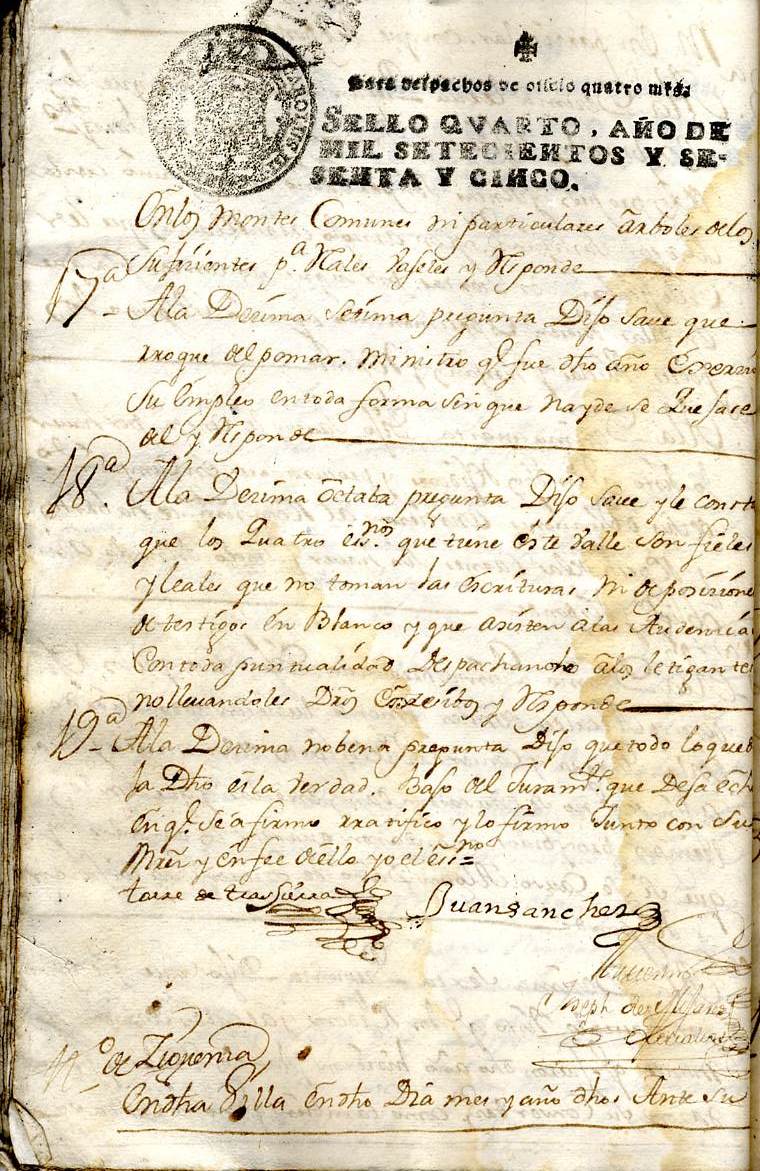 CAROLUS III
Para despachos de oficio quatro mrs.
SELLO QVARTO, AÑO DE
MIL SETECIENTOS Y SE-
SENTA Y CINCO.
En los montes Comunes ni particulares arboles de los
Sufizientes pa. Rales y Responde
17a A la Dezima setima pregunta Dijo save que
rroque del pomar. Ministro qe. fue dho año Exerzio
Su empleo en toda forma sin que Nayde se quejase
del y Responde
18a. A la Dezima octaba pregunta Dijo save y le consta
que los Quatro essnos. que tiene este valle son fieles
y leales que no toman las escrituras, ni deposizione
de testigos en Blanco y que asisten a las Audencia
Con toda puntualidad Despachando a los letigantes
no llevandoles Dros Exzesibos y Responde
19a A la Dezima nobena prepunta Dijo que todo lo que
ja Dho es la verdad. Bajo del Juramto. que Deja echo
en qe. se afirmo rratifico y lo firmo Junto con Su
Mrd y en fee dello yo el essno =
torre de trassierra Juan Sanchez
Joseph
to de
En dha Villa en dho Dia mes y año dhos Ante Su